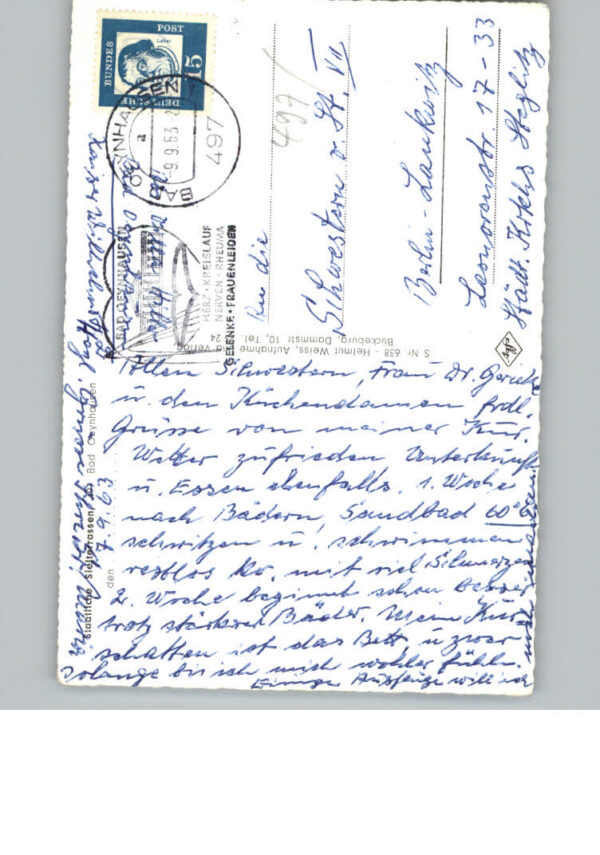 DEUTSCHE BUNDESPOST
15
Luther
BAD OEYNHAUSEN
a
-9.9.63
497
BAD OEYNHAUSEN
HERZ·KREISLAUF
NERVEN·RHEUMA
GELENKE·FRAUENLEIDEN
497/
An die
Schwestern v. St. VII
Berlin-Lankwitz
Leonorenstr. 17-33
Städt. Krkhs Steglitz
S Nr. 658 - Helmut Weiss, Aufnahme und Verlag
Bückeburg, Dammstr. 10, Tel. 24
Staatliche Sielterrassen, Bad Oeynhausen
den 7.9.63
Allen Schwestern, Frau Dr. Gericke
u. den Küchendamen frdl.
Grüsse von meiner Kur.
Wetter zufrieden Unterkunft
u. Essen ebenfalls. 1. Woche
nach Bädern, Sandbad 60°
schwitzen u. schwimmen
restlos ko. mit viel Schmerzen
2. Woche beginnt schon besser
trotz starker Bäder. Mein Kur-
schatten ist das Bett u. zwar
solange bis ich mich wohler fühle.
Einige Ausflüge will ich